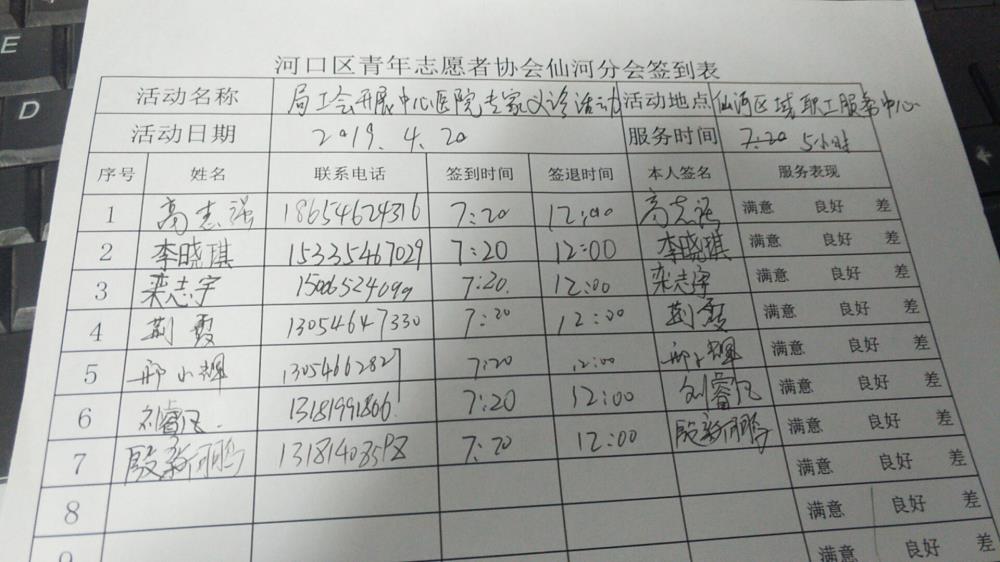 E
D
河口区青年志愿者协会仙河分会签到表
活动名称 局工会开展中心医院专家义诊活动 活动地点 仙河区域职工服务中心
活动日期 2019.4.20 服务时间 7:20 5小时
序号 姓名 联系电话 签到时间 签退时间 本人签名 服务表现
1 高志强 18654624316 7:20 12:00 高志强 满意 良好 差
2 李晓琪 15335467029 7:20 12:00 李晓琪 满意 良好 差
3 栾志宇 15006524099 7:20. 12:00 栾志宇 满意 良好 差
4 荆霞 13054647330 7:20 12:00 荆霞 满意 良好 差
5 邢小辉 13054662827 7:20 12:00 邢小辉 满意 良好 差
6 刘睿凡 13181991866 7:20 12:00 刘睿凡 满意 良好 差
7 殷新鹏 7:20 12:00 殷新鹏 满意 良好 差
8 满意 良好 差
9 满意 良好 差